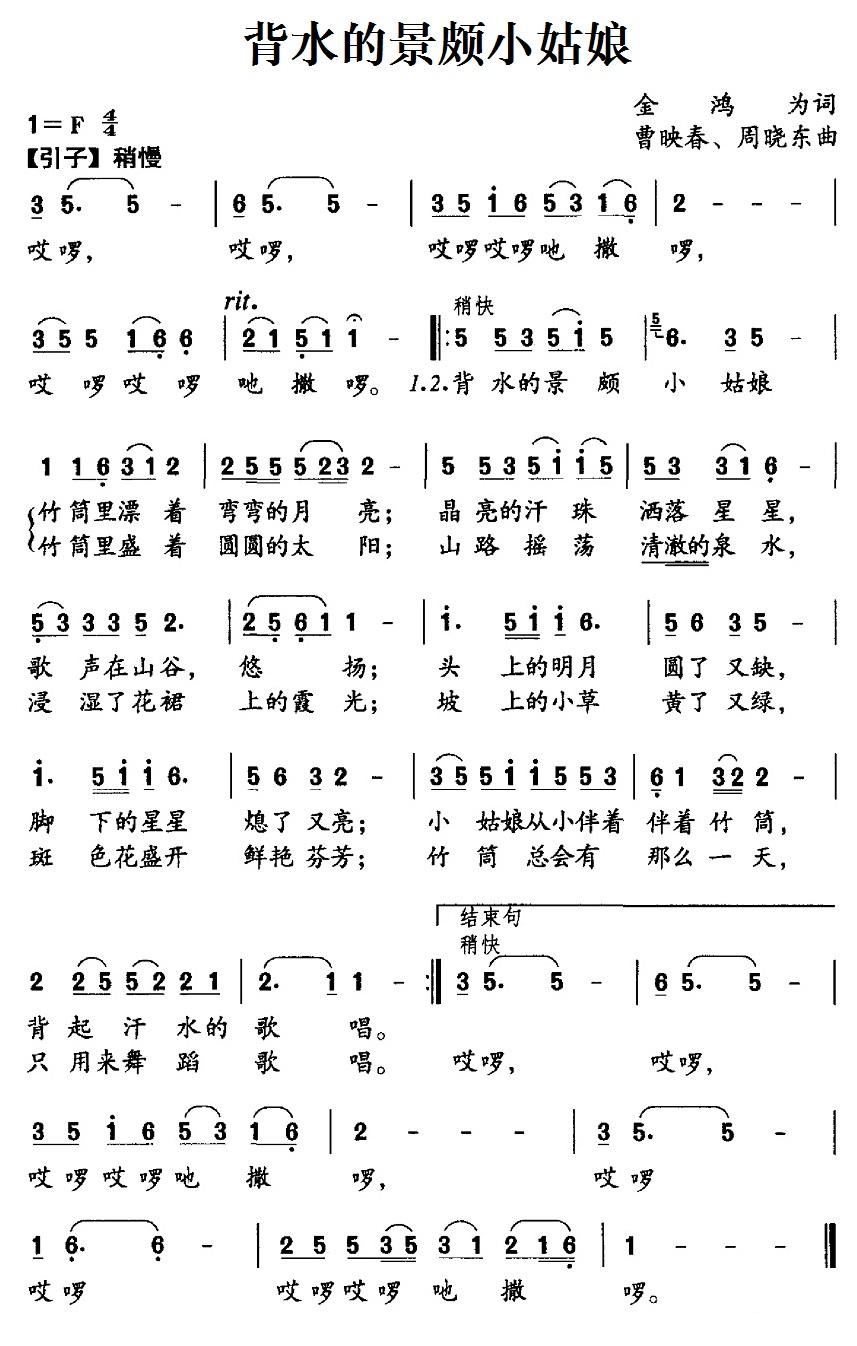 背水的景颇小姑娘
金鸿为词
1=F 4/4
曹映春、周晓东曲
【引子】稍慢
3 5. 5 - | 6 5. 5 - | 3 5 i 6 5 3 1 6 | 2 - - - |
哎啰, 哎啰, 哎啰哎啰吔撒啰,
rit. 稍快
3 5 5 1 6 6 | 2 1 5 1 1 - ‖: 5 5 3 5 i 5 | 5 6. 3 5 - |
哎啰哎啰吔撒啰。 1.2.背水的景颇小姑娘
1 1 6 3 1 2 | 2 5 5 5 2 3 2 - | 5 5 3 5 i i 5 | 5 3 3 1 6 - |
竹筒里漂着弯弯的月亮; 晶亮的汗珠洒落星星,
竹筒里盛着圆圆的太阳; 山路摇荡清澈的泉水,
5 3 3 3 5 2. | 2 5 6 1 1 - | i. 5 i i 6. | 5 6 3 5 - |
歌声在山谷, 悠扬; 头上的明月圆了又缺,
浸湿了花裙上的霞光; 坡上的小草黄了又绿,
i. 5 i i 6. | 5 6 3 2 - | 3 5 5 i i 5 5 3 | 6 1 3 2 2 - |
脚下的星星熄了又亮; 小姑娘从小伴着伴着竹筒,
斑色花盛开鲜艳芬芳; 竹筒总会有那么一天,
结束句
稍快
2 2 5 5 2 2 1 | 2. 1 1 - :‖ 3 5. 5 - | 6 5. 5 - |
背起汗水的歌唱。
只用来舞蹈歌唱。 哎啰, 哎啰,
3 5 i 6 5 3 1 6 | 2 - - - | 3 5. 5 - |
哎啰哎啰吔撒啰, 哎啰
1 6. 6 - | 2 5 5 3 5 3 1 2 1 6 | 1 - - - ‖
哎啰 哎啰哎啰吔撒啰。